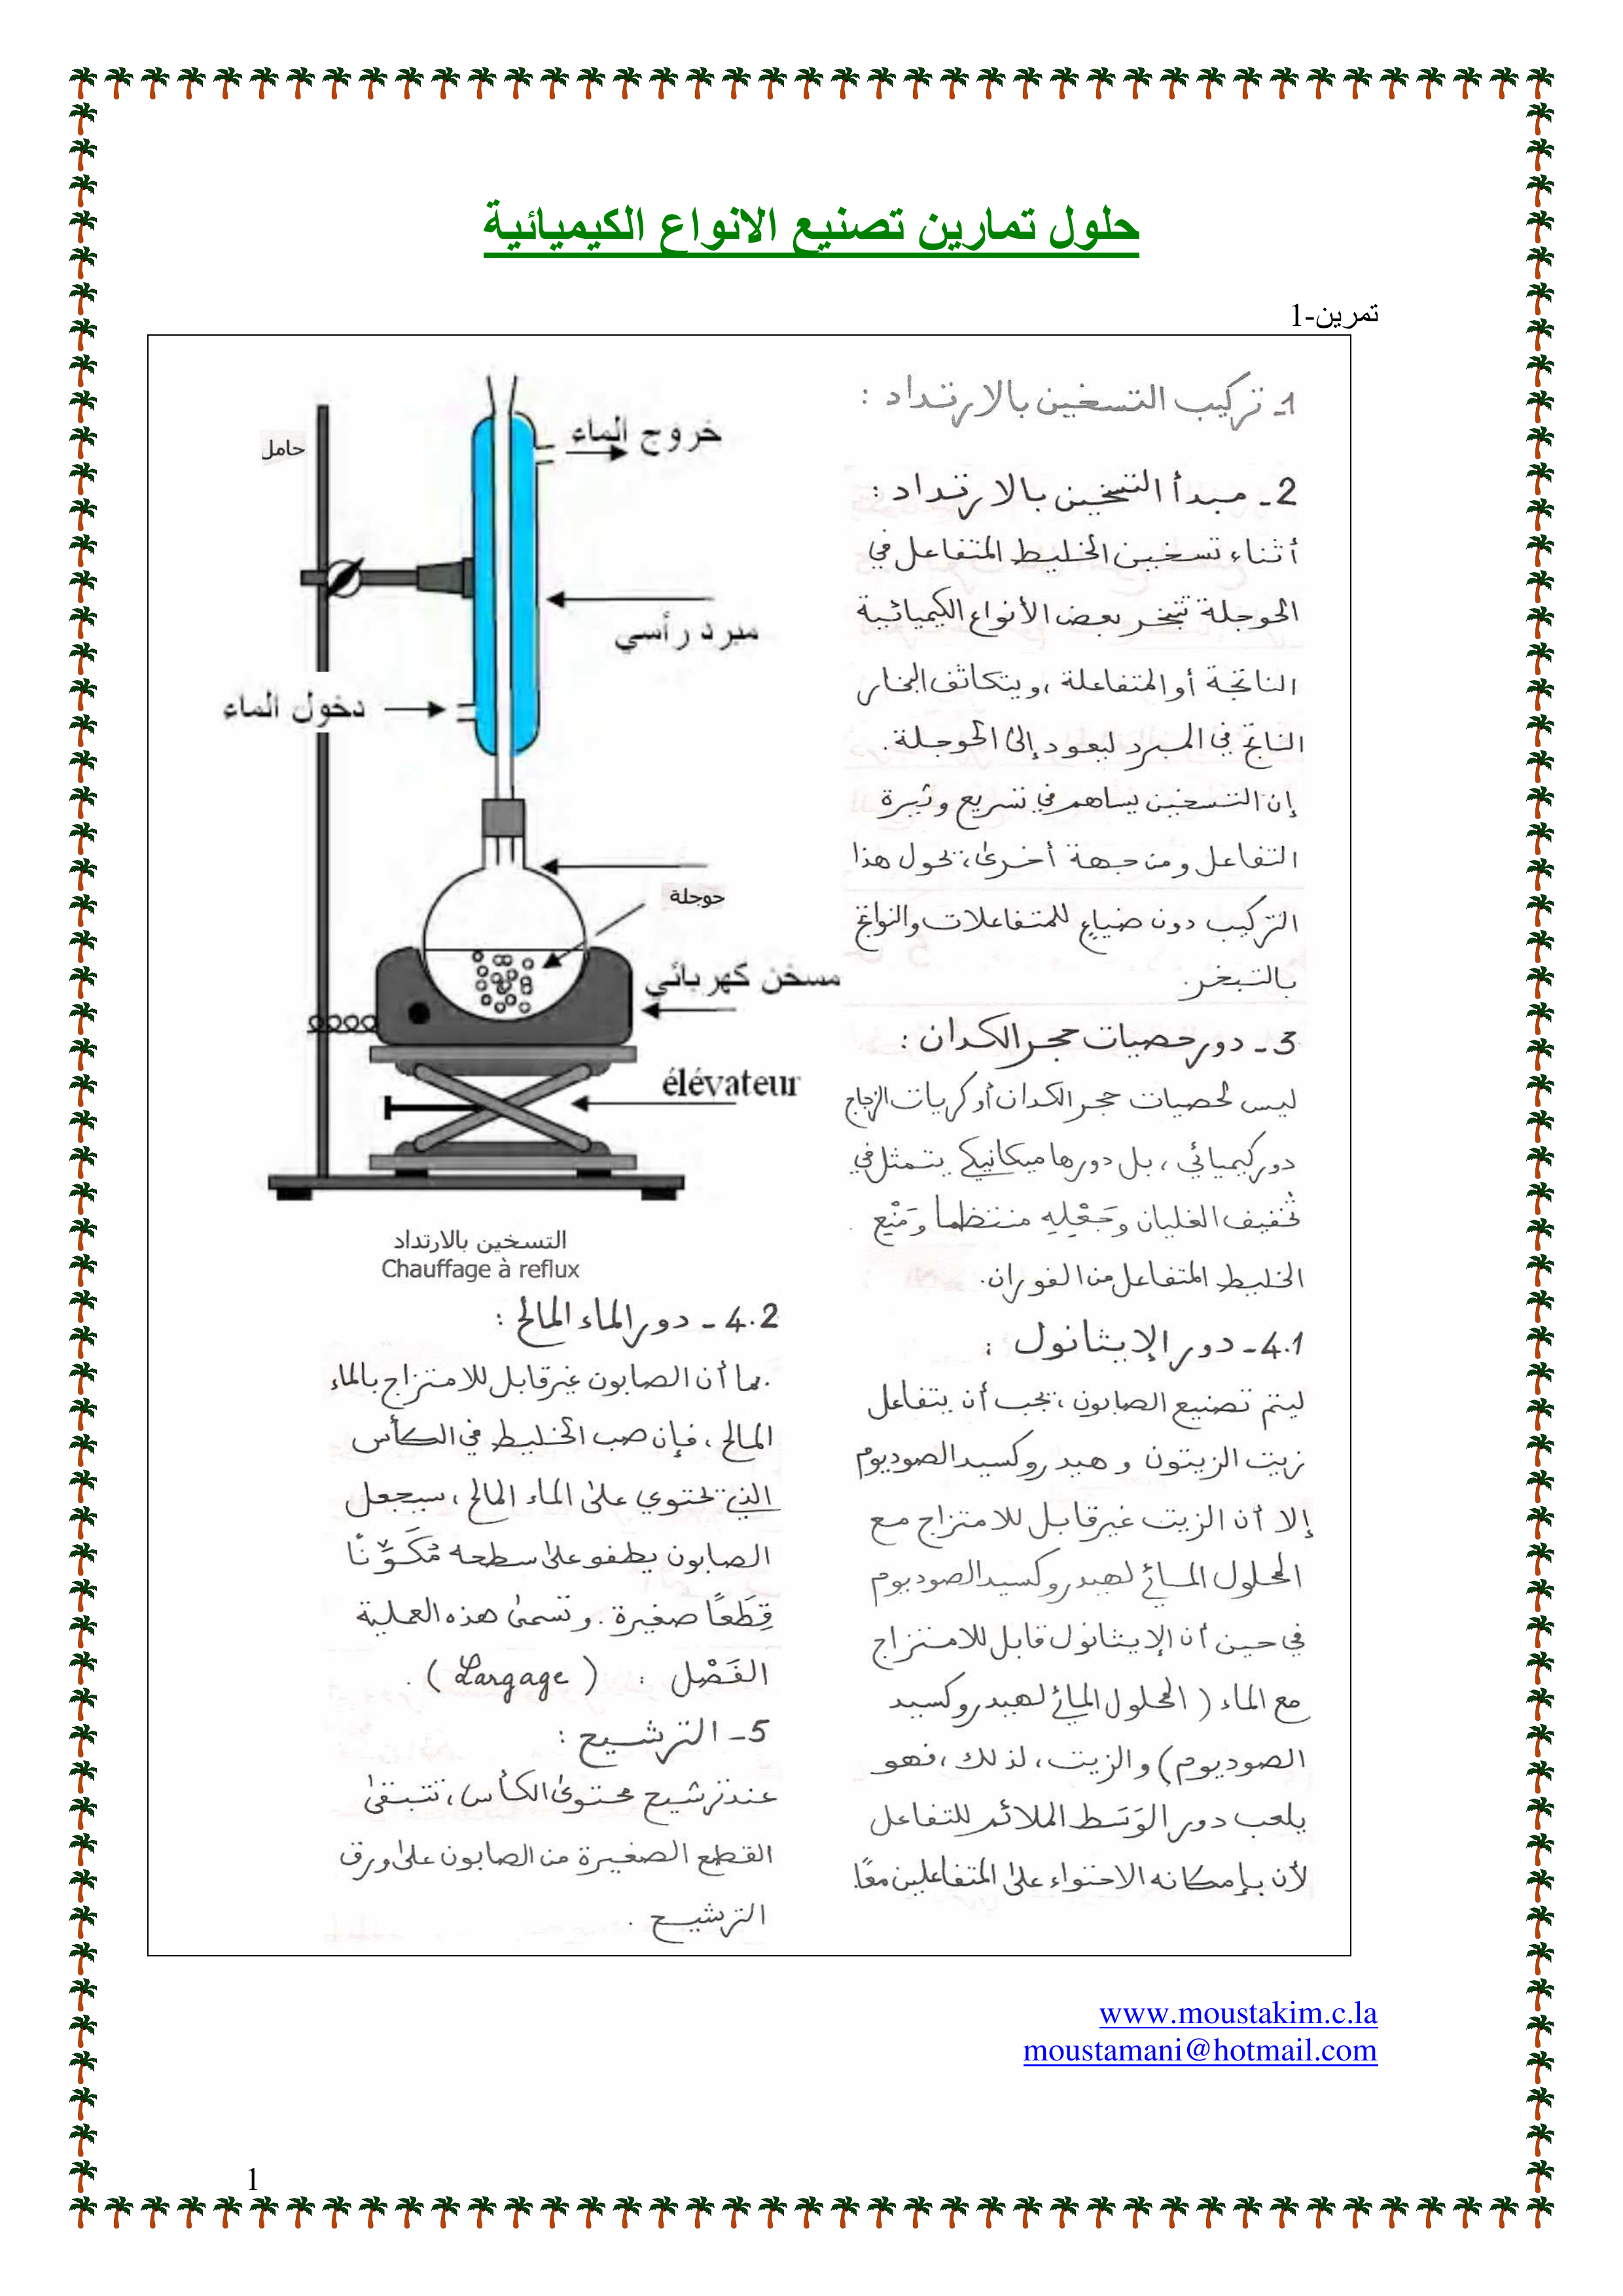 حلول تمارين تصنيع الانواع الكيميائية
تمرين-1
1- تركيب التسخين بالارتداد :
2- مبدأ التسخين بالارتداد :
أثناء تسخين الخليط المتفاعل في
الحوجلة تتبخر بعض الأنواع الكيميائية
الناتجة أو المتفاعلة ، ويتكاثف البخار
الناتج في المبرد ليعود إلى الحوجلة .
إن التسخين يساهم في تسريع وثيرة
التفاعل ومن جهة أخرى ، يحول هذا
التركيب دون ضياع للمتفاعلات والنواتج
بالتبخر .
3- دور حصيات حجر الكدان :
ليس لحصيات حجر الكدان أو كريات الزجاج
دور كيميائي ، بل دورها ميكانيكي يتمثل في
تخفيف الغليان وَجَعْلِهِ منتظما وَمَنْعِ .
الخليط المتفاعل من الفوران .
4.1- دور الإيثانول :
ليتم تصنيع الصابون ، يجب أن يتفاعل
زيت الزيتون و هيدروكسيد الصوديوم
إلا أن الزيت غير قابل للامتزاج مع
المحلول المائي لهيدروكسيد الصوديوم
في حين أن الإيثانول قابل للامتزاج
مع الماء ( المحلول المائي لهيدروكسيد
الصوديوم ) والزيت ، لذلك ، فهو
يلعب دور الوَسَط الملائم للتفاعل
لأن بإمكانه الاحتواء على المتفاعلين معًا.
خروج الماء
حامل
مبرد رأسي
دخول الماء
حوجلة
مسخن كهربائي
élévateur
التسخين بالارتداد
Chauffage à reflux
4.2 - دور الماء المالح :
بما أن الصابون غير قابل للامتزاج بالماء
المالح ، فإن صب الخليط في الكأس
الذي تحتوي على الماء المالح ، سيجعل
الصابون يطفو على سطحه مُكَوِّنًا
قِطَعًا صغيرة . و تسمى هذه العملية
الفَصْل : ( Largage ) .
5- الترشيح :
عند ترشيح محتوى الكأس ، تتبقى
القطع الصغيرة من الصابون على ورق
الترشيح .
www.moustakim.c.la
moustamani@hotmail.com
1